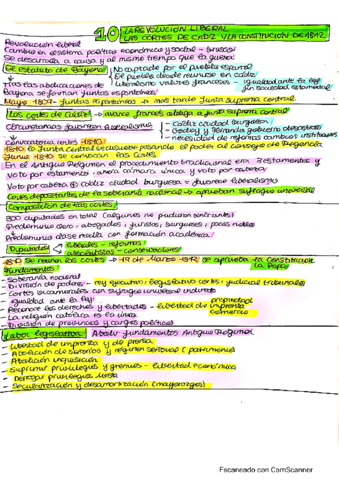 10 LA REVOLUCIÓN LIBERAL
LAS CORTES DE CÁDIZ Y LA CONSTITUCIÓN DE 1812
Revolución liberal
Cambio en el sistema político económico y social - brusco
Se desarrolla a causa y al mismo tiempo que la guerra
El estatuto de Bayona No aceptado por el pueblo español
El pueblo desea reunirse en Cádiz
Liberalismo valores franceses - igualdad ante la ley
Tras las abdicaciones de sin sociedad estamental
se forman juntas españolas
Mayo 1809 - juntas españolas → más tarde Junta Suprema central
Las cortes de Cádiz → avance francés obliga a junta suprema central
Circunstancias favorecen liberalismo - Cádiz ciudad burguesa
- Godoy y Fernando gobierno despótico
- necesidad de reformas cambios instituciones
Convocatoria cortes 1810
1810 → Junta Central pasando el poder al consejo de Regencia
Junio 1810 se convocan las cortes
En el Antiguo Régimen el procedimiento tradicional era Estamentos y
voto por estamento, ahora cámara única y voto por cabeza
Voto por cabeza → Cádiz ciudad burguesa - favorece liberalismo
Cortes depositarias de la soberanía nacional → aprueban sufragio universal
Composición de las cortes
300 diputados en total (algunos no pudieron entrar)
Predominio clero, abogados, juristas, burgueses, pocos nobles
Predominio clase media con formación académica
Diputados → liberales - reformas
absolutistas - conservadores
1810 se reúnen las cortes → 19 de Marzo 1812 se aprueba la Constitución
Fundamentos La Pepa
- Soberanía nacional
- División de poderes - rey ejecutivo / legislativo cortes / judicial tribunales
- Cortes unicamerales con sufragio universal
- Igualdad ante la ley propiedad
- Reconoce los derechos y libertades - libertad de imprenta
comercio
- La religión católica es la única
- División de provincias y cargos políticos
Labor legislativa Abolir fundamentos Antiguo Régimen
- Libertad de imprenta y de prensa
- Abolición de señoríos y régimen señorial
- Abolición inquisición
- Suprimir privilegios y gremios - libertad económica
- Derogar privilegios Mesta
- Secularización y desamortización (mayorazgos)
Escaneado con CamScanner